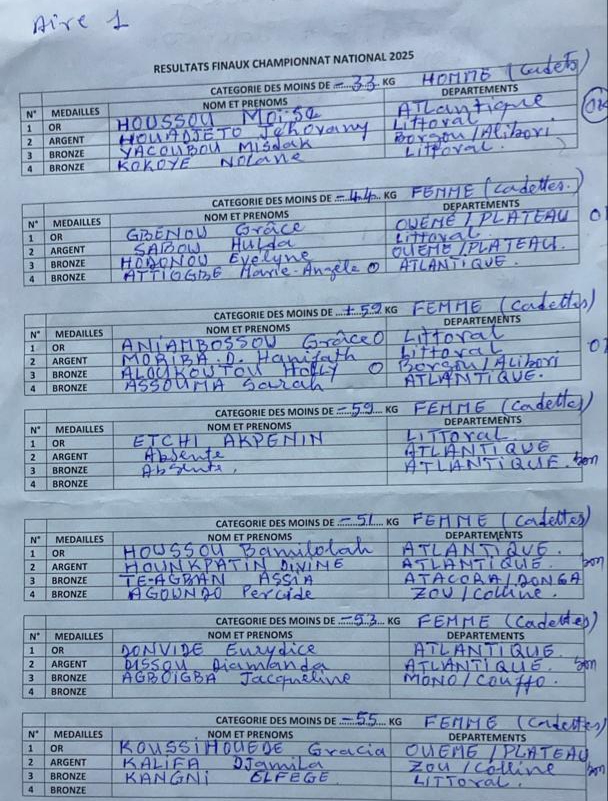 Aire 1
RESULTATS FINAUX CHAMPIONNAT NATIONAL 2025
CATEGORIE DES MOINS DE -33 KG HOMME (Cadets)
N° MEDAILLES NOM ET PRENOMS DEPARTEMENTS
1 OR HOUSSOU Moïse ATLantique
2 ARGENT HOUADJETO Jehovany Littoral
3 BRONZE YACOUBOU Misdak Borgou/Alibori
4 BRONZE KOKOYE Nolane Littoral.
CATEGORIE DES MOINS DE -44 KG FEMME (Cadettes.)
N° MEDAILLES NOM ET PRENOMS DEPARTEMENTS
1 OR GBENOU Grâce OUEME / PLATEAU
2 ARGENT SABOW Hulda Littoral
3 BRONZE HODONOU Evelyne OUEME/PLATEAU.
4 BRONZE ATTIOGBE Marie-Angèle ATLANTIQUE.
CATEGORIE DES MOINS DE +59 KG FEMME (Cadettes)
N° MEDAILLES NOM ET PRENOMS DEPARTEMENTS
1 OR ANIAMBOSSOU Grâce Littoral
2 ARGENT MORIBA.D. Hanifath Littoral
3 BRONZE ALOUKOUTOU Holly Borgou/Alibori
4 BRONZE ASSOUMA Sarah ATLANTIQUE.
CATEGORIE DES MOINS DE -59 KG FEMME (Cadettes)
N° MEDAILLES NOM ET PRENOMS DEPARTEMENTS
1 OR ETCHI AKPENIN LITToral
2 ARGENT Absente ATLANTIQUE
3 BRONZE Absente. ATLANTIQUE.
4 BRONZE
CATEGORIE DES MOINS DE -51 KG FEMME (Cadettes)
N° MEDAILLES NOM ET PRENOMS DEPARTEMENTS
1 OR HOUSSOU Bamilolah ATLANTIQUE.
2 ARGENT HOUNKPATIN DIVINE ATLANTIQUE.
3 BRONZE TE-AGBAN ASSIA ATACORA/DONGA
4 BRONZE AGOUNDO Perside ZOU/Colline.
CATEGORIE DES MOINS DE -53 KG FEMME (Cadettes)
N° MEDAILLES NOM ET PRENOMS DEPARTEMENTS
1 OR DONVIDE Eurydice ATLANTIQUE.
2 ARGENT DISSOU Diamanda ATLANTIQUE.
3 BRONZE AGBOIGBA Jacqueline MONO/Couffo.
4 BRONZE
CATEGORIE DES MOINS DE -55 KG FEMME (Cadettes)
N° MEDAILLES NOM ET PRENOMS DEPARTEMENTS
1 OR KOUSSIHOUEDE Gracia OUEME / PLATEAU
2 ARGENT KALIFA DJamila ZOU/Colline
3 BRONZE KANGNI ELFEGE LITToral.
4 BRONZE